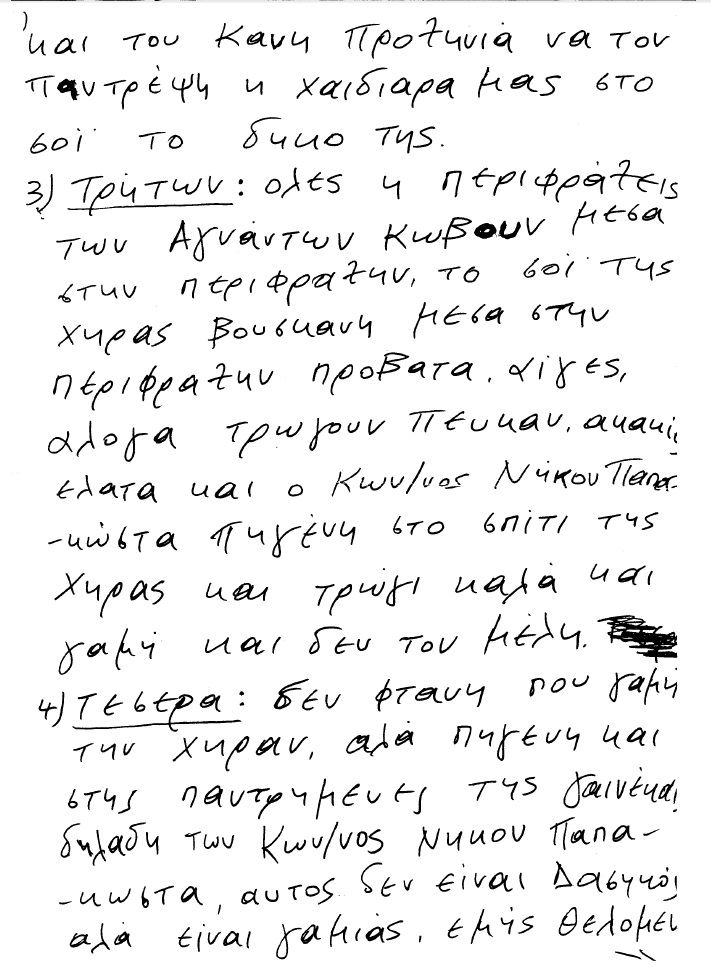 και του κανη προξηνιά να τον
παντρέψη η χαιδιάρα μας στο
σοϊ το δηκο της.
3) Τρήτων: ολες η περιφράξεις
των Αγνάντων κωβουν μεσα
στην περιφραξην, το σοϊ της
χηρας βουσκανη μεσα στην
περιφραξην προβατα, αίγες,
αλογα τρωγουν πευκαν, ακακι
ελατα και ο Κων/νος Νήκου Παπα-
-κώστα πηγένη στο σπίτι της
χηρας και τρώγι καλά και
γαμή και δεν τον μέλη.
4) τεσερα: δεν φτανη που γαμη
την χηραν, αλά πηγενη και
στης παντρημενες της γαινέκαι
δηλαδη των Κων/νος Νηκου Παπα-
-κωστα, αυτος δεν είναι Δασηκός
αλά είναι γαμιάς, εμής θελομεν